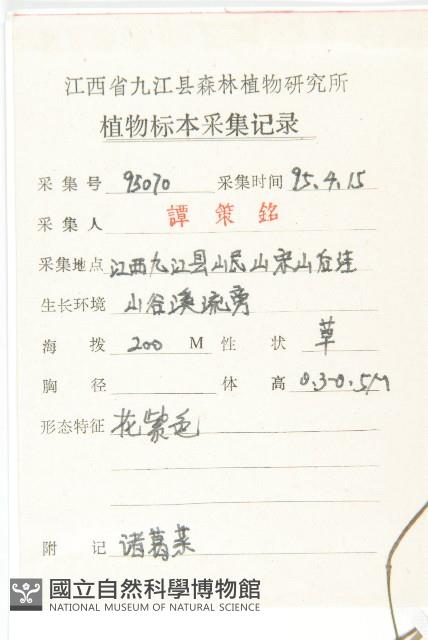 江西省九江县森林植物研究所
植物标本采集记录
采集号 95070 采集时间 95.4.15
采集人 譚策銘
采集地点 江西九江县岷山宋山后洼
生长环境 山谷溪流旁
海拨 200 M 性状 草
胸径 体高 0.3-0.5M
形态特征 花紫色
附记 诸葛菜
國立自然科學博物館
NATIONAL MUSEUM OF NATURAL SCIENCE